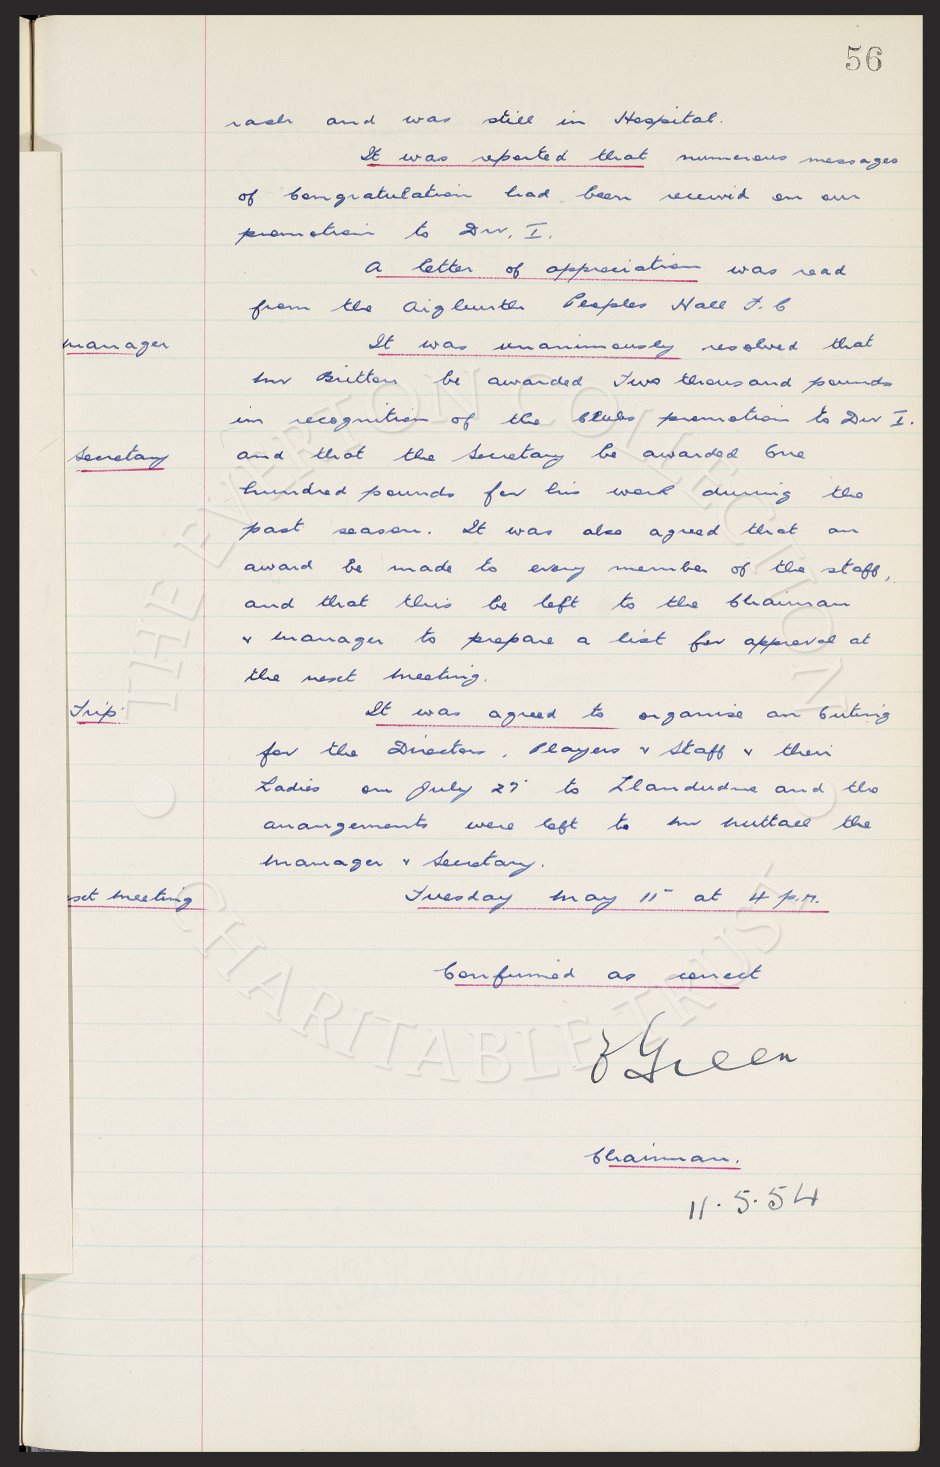 56
rash and was still in Hospital.
It was reported that numerous messages
of Congratulation had been receivid on our
promotion to Div. I.
A letter of appreciation was read
from the Aigburth Peoples Hall F.C
Manager
It was unanimously resolved that
Mr Britton be awarded Two thousand pounds
in recognition of the Clubs promotion to Div I.
Secretary
and that the Secretary be awarded One
hundred pounds for his work during the
past season. It was also agreed that an
award be made to every member of the staff,
and that this be left to the Chairman
& Manager to prepare a list for approval at
the next meeting.
Trip
It was agreed to organise an Outing
for the Directors, Players & Staff & their
Ladies on July 27 to Llandudno and the
arrangements were left to Mr Nuttall the
Manager & Secretary.
ext Meeting
Tuesday May 11 at 4 p.m.
Confirmed as correct
Green
Chairman.
11.5.54
THE EVERTON COLLECTION
CHARITABLE TRUST